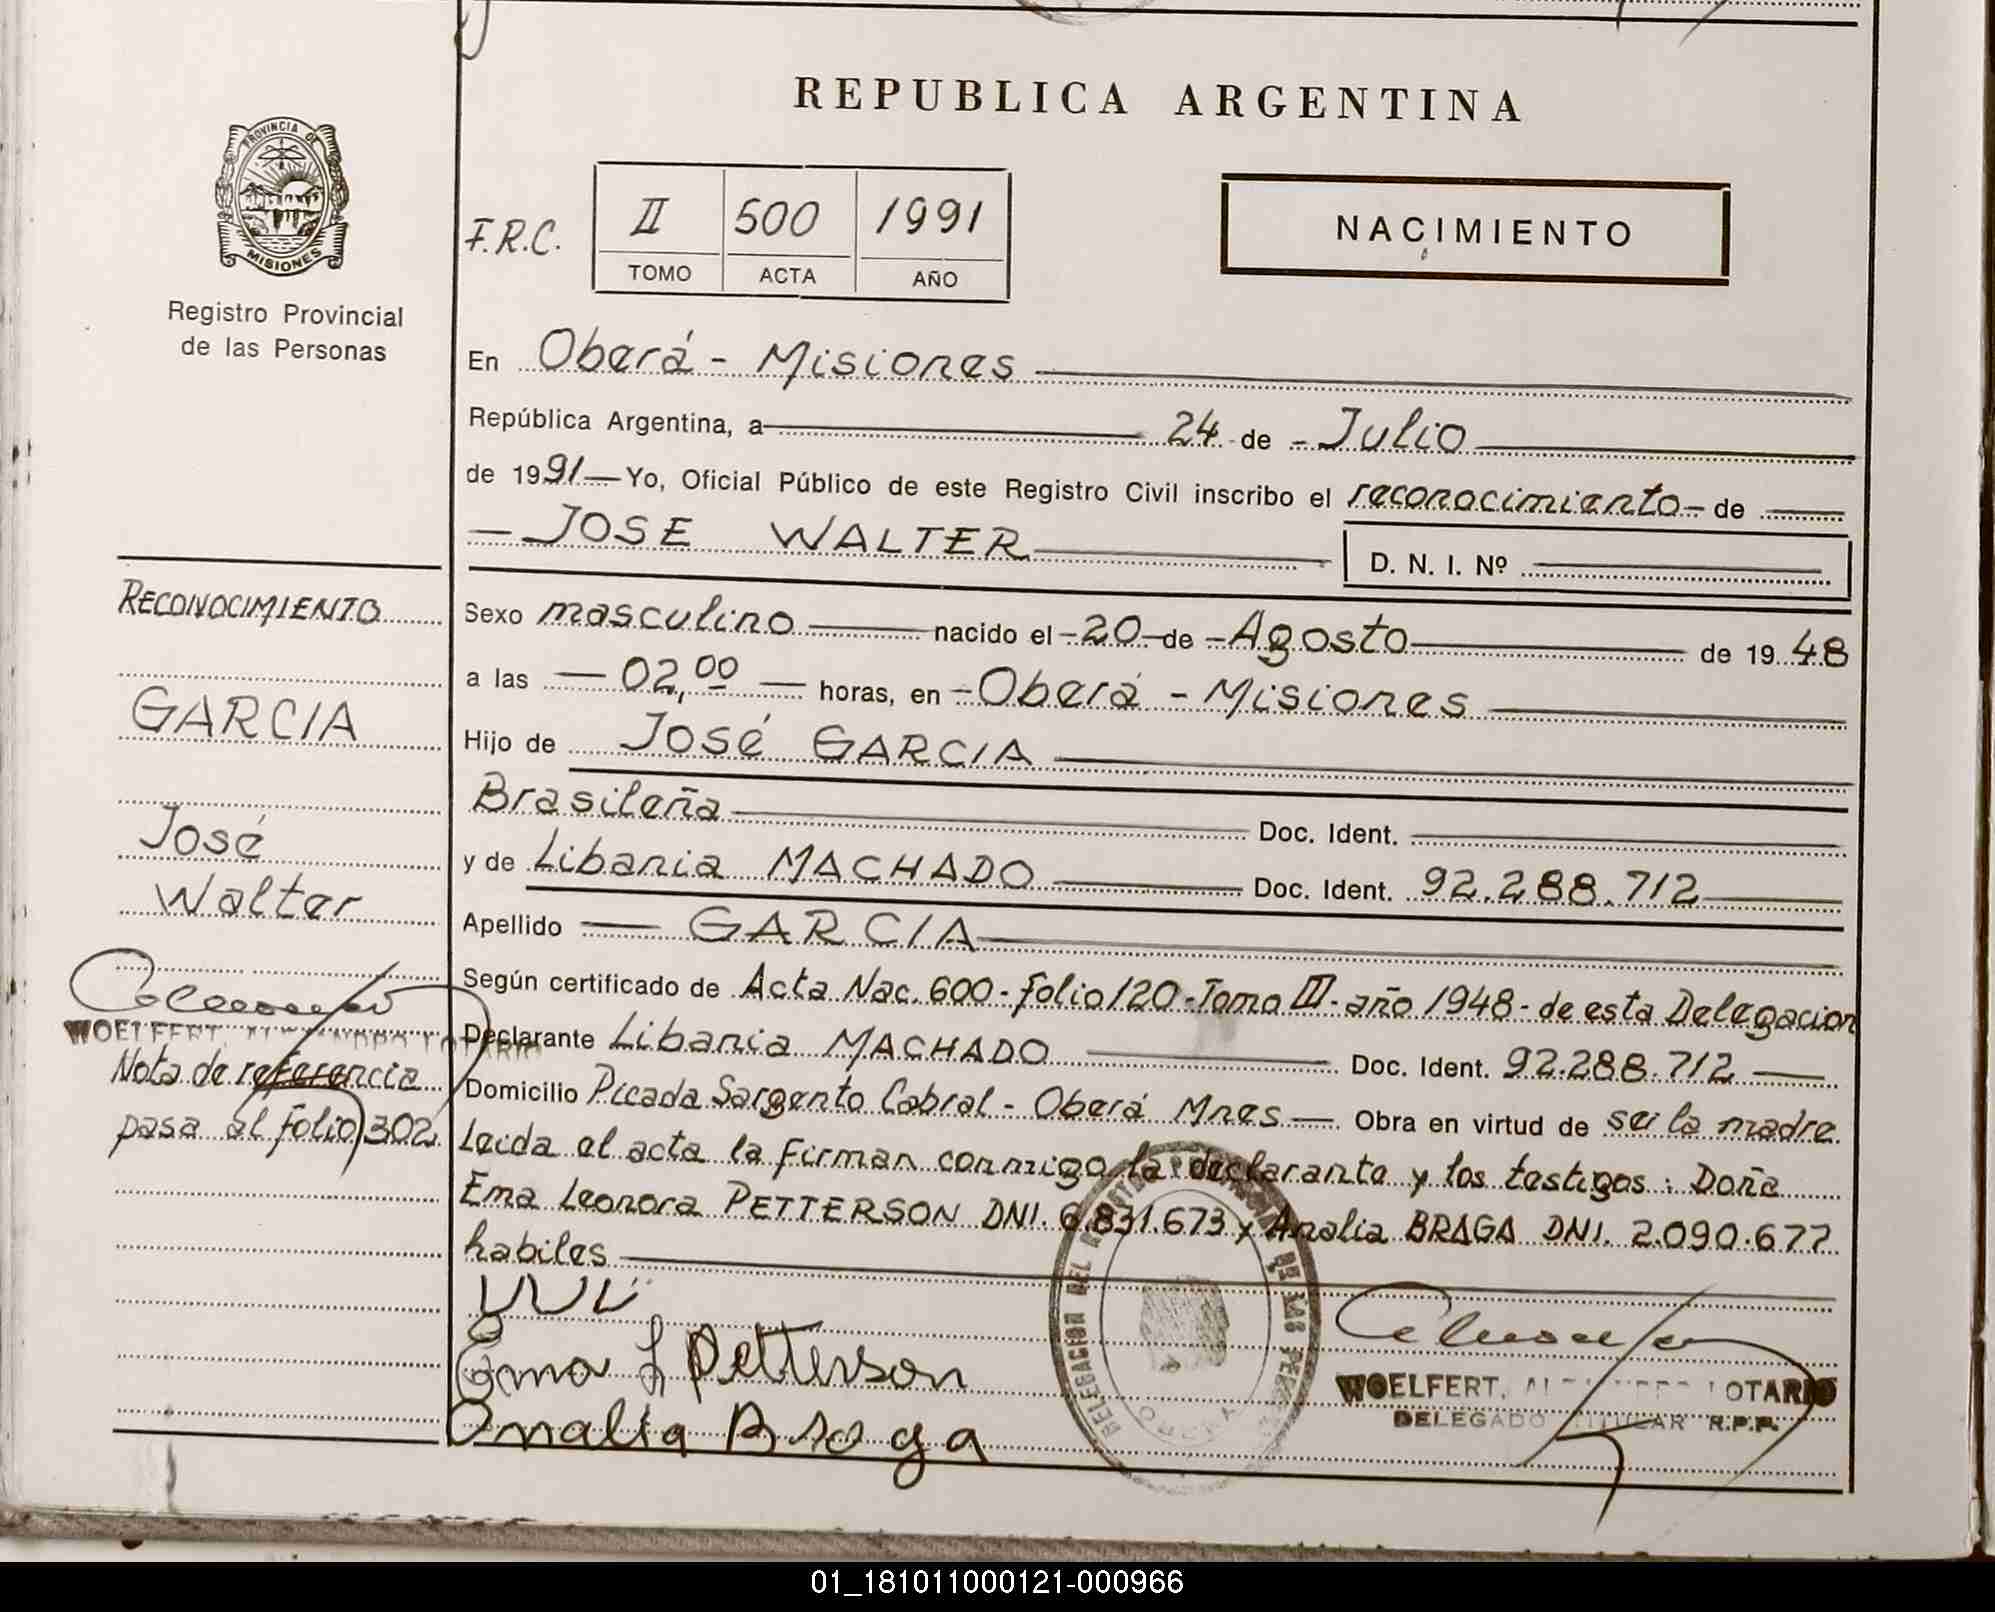 REPUBLICA ARGENTINA
PROVINCIA DE
MISIONES
Registro Provincial
de las Personas
F.R.C.
II 500 1991
TOMO ACTA AÑO
NACIMIENTO
En Oberá - Misiones
República Argentina, a 24 de - Julio
de 1991 — Yo, Oficial Público de este Registro Civil inscribo el reconocimiento - de
- JOSE WALTER
D. N. I. Nº
Sexo masculino nacido el - 20 - de - Agosto de 19 48
a las — 02,00 — horas, en - Oberá - Misiones
Hijo de José GARCIA
Brasileña Doc. Ident.
y de Libania MACHADO Doc. Ident. 92.288.712
Apellido — GARCIA
Según certificado de Acta Nac. 600 - folio 120 - Tomo III - año 1948 - de esta Delegacion
Declarante Libania MACHADO Doc. Ident. 92.288.712 —
Domicilio Picada Sargento Cabral - Oberá Mnes — Obra en virtud de ser la madre.
Leida el acta la firman conmigo la declarante y los testigos: Doña
Ema Leonora PETTERSON DNI. 6.831.673 y Analia BRAGA DNI. 2.090.677
habiles
Ema L Petterson
Analia Braga
DELEGACION DEL
DE LAS
WOELFERT, LOTARIO
DELEGADO TITULAR R.P.P.
RECONOCIMIENTO
GARCIA
José
Walter
WOELFERT,
Nota de referencia
pasa al folio 302
01_181011000121-000966